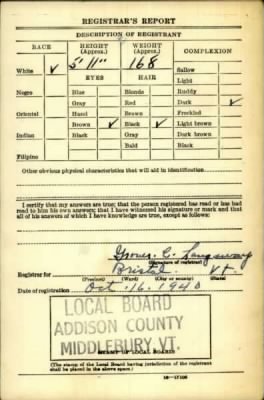 REGISTRAR'S REPORT
DESCRIPTION OF REGISTRANT
RACE HEIGHT (Approx.) WEIGHT (Approx.) COMPLEXION
White ✓ 5' 11" 168 Sallow
EYES HAIR Light
Negro Blue Blonde Ruddy
Gray Red Dark ✓
Oriental Hazel Brown Freckled
Brown ✓ Black ✓ Light brown
Indian Black Gray Dark brown
Bald Black
Filipino
Other obvious physical characteristics that will aid in identification
I certify that my answers are true; that the person registered has read or has had
read to him his own answers; that I have witnessed his signature or mark and that
all of his answers of which I have knowledge are true, except as follows:
(Signature of registrar)
Registrar for Bristol Vt.
(Precinct) (Ward) (City or county) (State)
Date of registration Oct. 16. 1940
LOCAL BOARD
ADDISON COUNTY
MIDDLEBURY, VT.
STAMP OF LOCAL BOARD
(The stamp of the Local Board having jurisdiction of the registrant
shall be placed in the above space.)